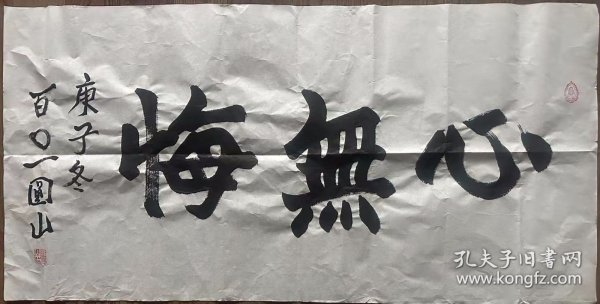 心無悔
庚子冬
百〇一圓山
孔夫子旧书网
www.kongfz.com